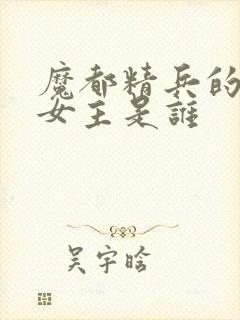 魔都精兵的
女主是誰
吴宇晗